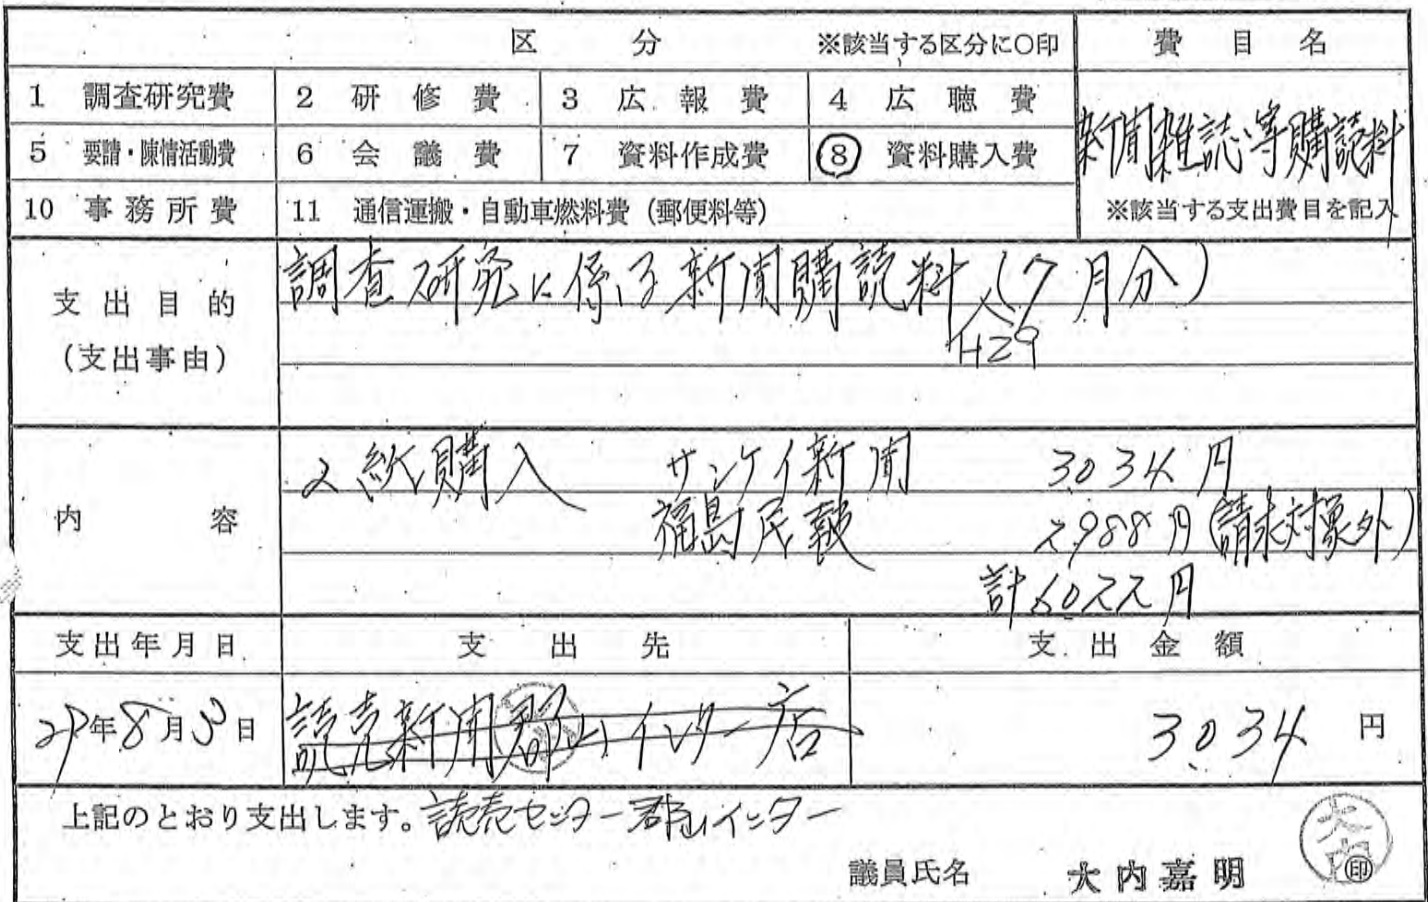 区 分 ※該当する区分に○印 費目名
1 調査研究費 2 研修費 3 広報費 4 広聴費
新聞雑誌等購読料
5 要請・陳情活動費 6 会議費 7 資料作成費 8 資料購入費
10 事務所費 11 通信運搬・自動車燃料費(郵便料等) ※該当する支出費目を記入
支出目的
(支出事由)
調査研究に係る新聞購読料(7月分)
H29
内容
2紙購入 サンケイ新聞 3034円
福島民報 2,988円(請求対象外)
計6022円
支出年月日 支出先 支出金額
29年8月3日 読売新聞郡山インター店 3,034円
上記のとおり支出します。読売センター郡山インター
議員氏名 大内嘉明 印
大内